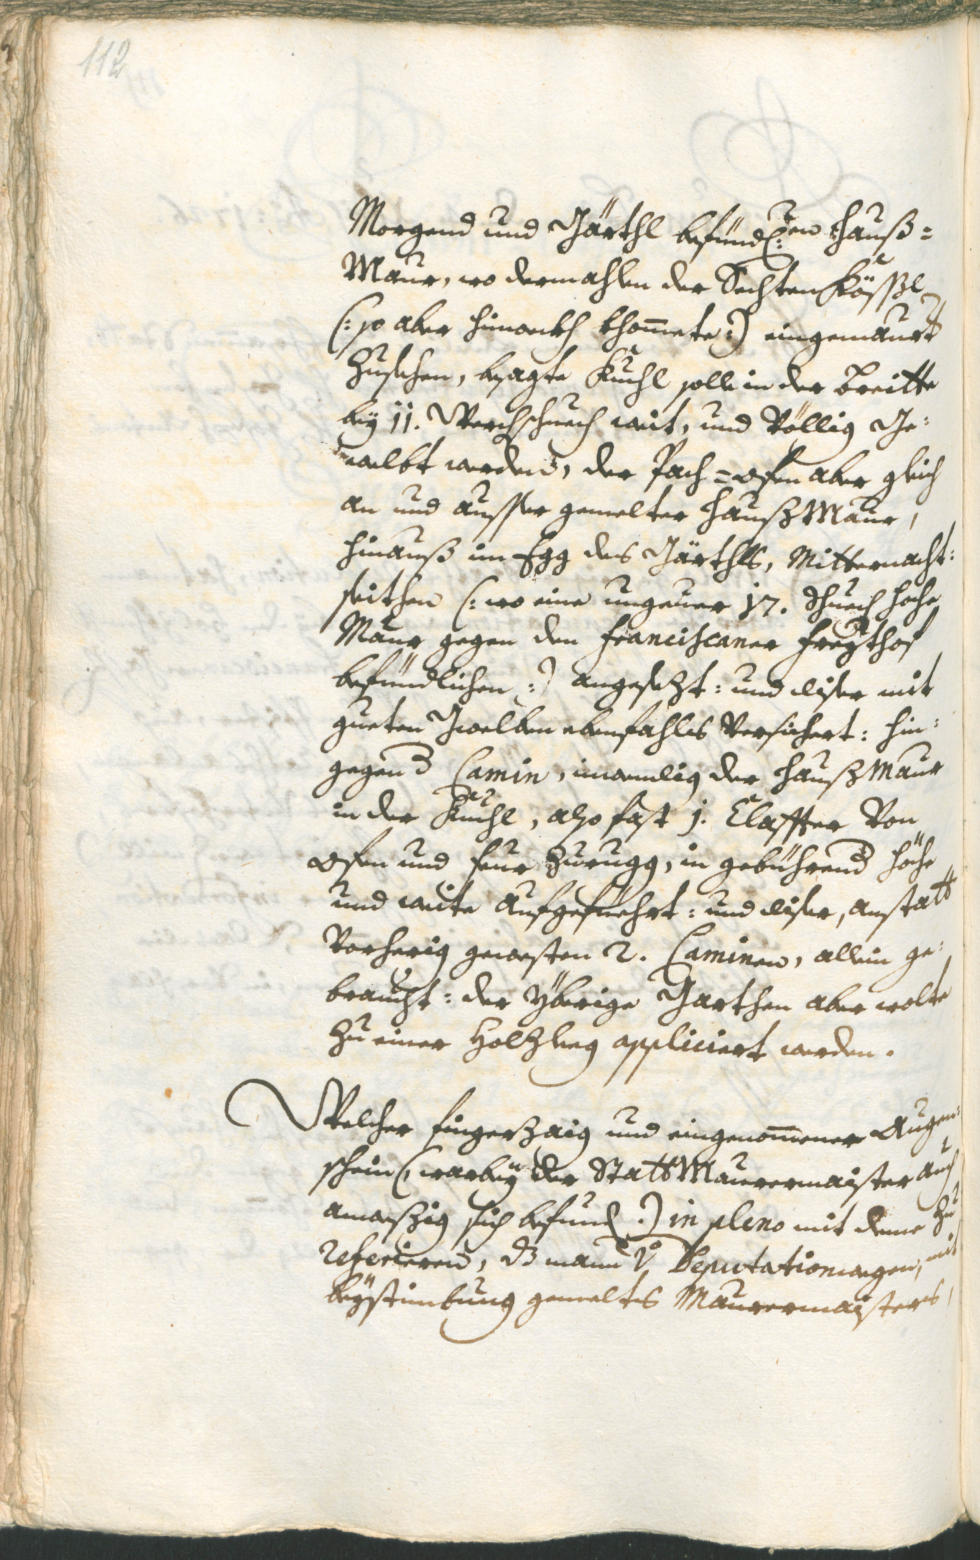 112
Morgend und Gärthl befündl:en Hauß=
Maur, wo dermahlen der Sechten Kössl
(: so aber hinwekh khommete :) eingemaurt
zusehen, besagte Kuchl solle in der Breitte
bey 11. Werchschuech weit, und Völlig Ge=
welbt werden, der Pach=ofen aber gleich
an und ausser gemelter Hauß Maur,
hinauß im Egg des Gärthls, Mitternacht=
seithen (: wo eine ungeuer 17. Schuech hoche
Maur gegen den Franciscaner Freythof
befündlichen :) angesezt: und diser mit
gueten Gwelben ebenfahls Versichert: hin=
gegen d Camin, inwendig der Hauß Maur
in der Kuchl, also fast 1. Claffter Von
ofen und feur zurugg, in gebührend Höche
und weite Aufgefüehrt: und diser, anstatt
Vorherig gewesten 2. Caminen, allein ge=
braucht: der ybrige Garthen aber wolte
zu einer Holzleg appliciert werden.
Welcher fingerzaig und eingenommener Augen=
schein (: warbey der Statt Maurermaister auch
anwesig sich befund :) in pleno mit deme zu
referieren, dz mann Deputationwegen, mit
beystimbung gemeltes Maurermaisters,